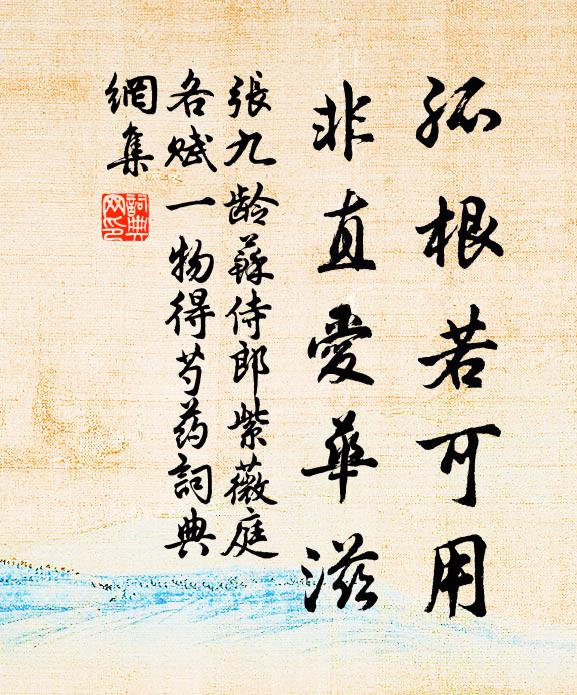 孤根若可用
非直愛華滋
張九龄蘇侍郎紫薇庭
各赋一物得芍药詞典
網集
詞典
网印